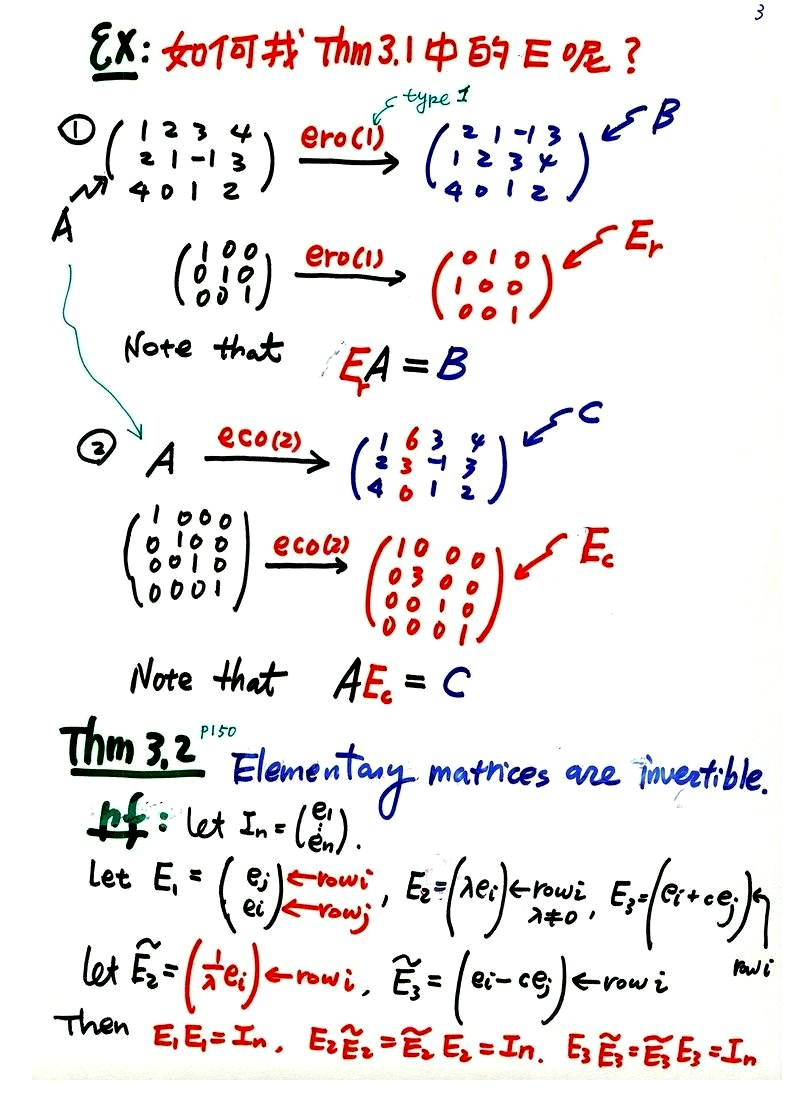 3
EX: 如何找 Thm 3.1 中的 E 呢？
type 1
① ( 1 2 3 4 ero(1) ( 2 1 -1 3 B
2 1 -1 3 ) → 1 2 3 4 )
4 0 1 2 4 0 1 2
A
( 1 0 0 ero(1) ( 0 1 0 Er
0 1 0 ) → 1 0 0 )
0 0 1 0 0 1
Note that ErA = B
② A eco(2) → ( 1 6 3 4 C
2 3 -1 3 )
4 0 1 2
( 1 0 0 0 eco(2) ( 1 0 0 0 Ec
0 1 0 0 → 0 3 0 0
0 0 1 0 0 0 1 0
0 0 0 1 ) 0 0 0 1 )
Note that AEc = C
Thm 3.2 P150 Elementary matrices are invertible.
pf: let In = (e1 ⋮ en).
Let E1 = (ej ←row i ei ←row j), E2 = (λei) ←row i λ≠0, E3 = (ei + cej) ← row i
let Ẽ2 = (1/λ ei) ←row i, Ẽ3 = (ei - cej) ←row i
Then E1E1 = In, E2Ẽ2 = Ẽ2E2 = In. E3Ẽ3 = Ẽ3E3 = In